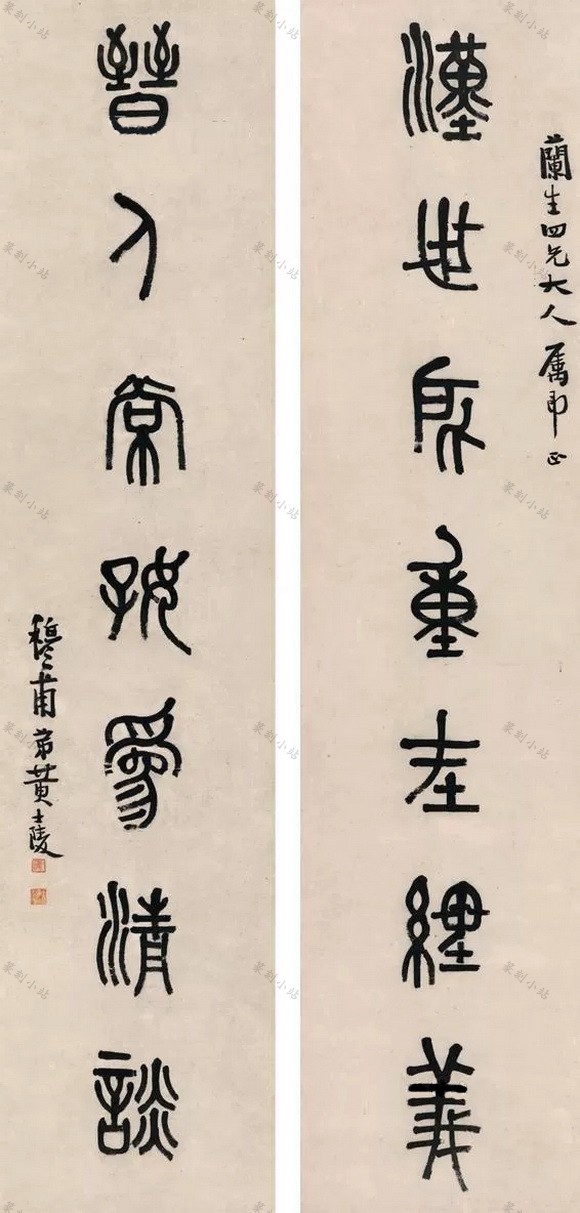 蘭生四兄大人属即正
漢世所重在經義
晉人常好為清談
穆甫弟黃士陵
篆刻小站